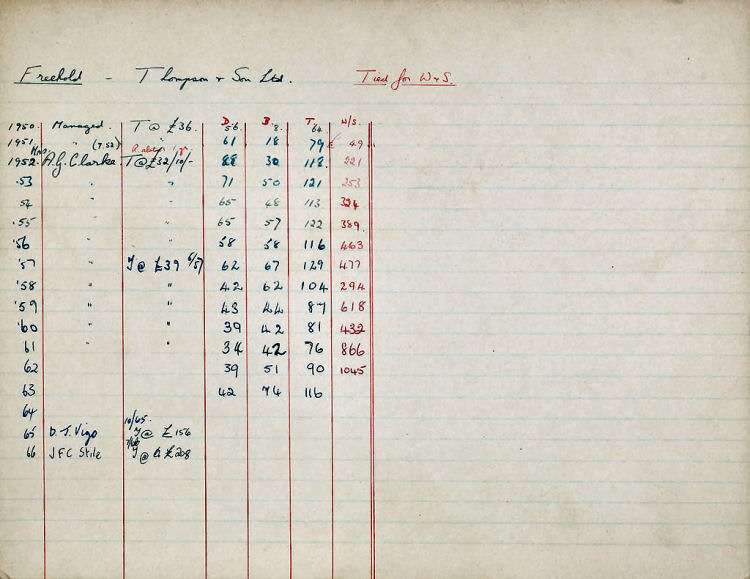 Freehold - Thompson & Son Ltd. Tied for W & S.
D. B. T. W/S.
1950. Managed. T @ £36. 56. 8. 64
1951 " (7.52) " 61 18 79 £ 49
Mrs Rabate 1 yr.
1952. A.G. Clarke T @ £32/10/- 88 30 118 221
53 " " 71 50 121 253
54 " " 65 48 113 324
.55 " " 65 57 122 389
'56 " " 58 58 116 463
'57 " T @ £39 6/57 62 67 129 477
'58 " " 42 62 104 294
'59 " " 43 44 87 618
'60 " " 39 42 81 432
61 " " 34 42 76 866
62 39 51 90 1045
63 42 74 116
64
10/65.
65 D.J. Vigo T @ £156
66 JFC Stile T @ £208